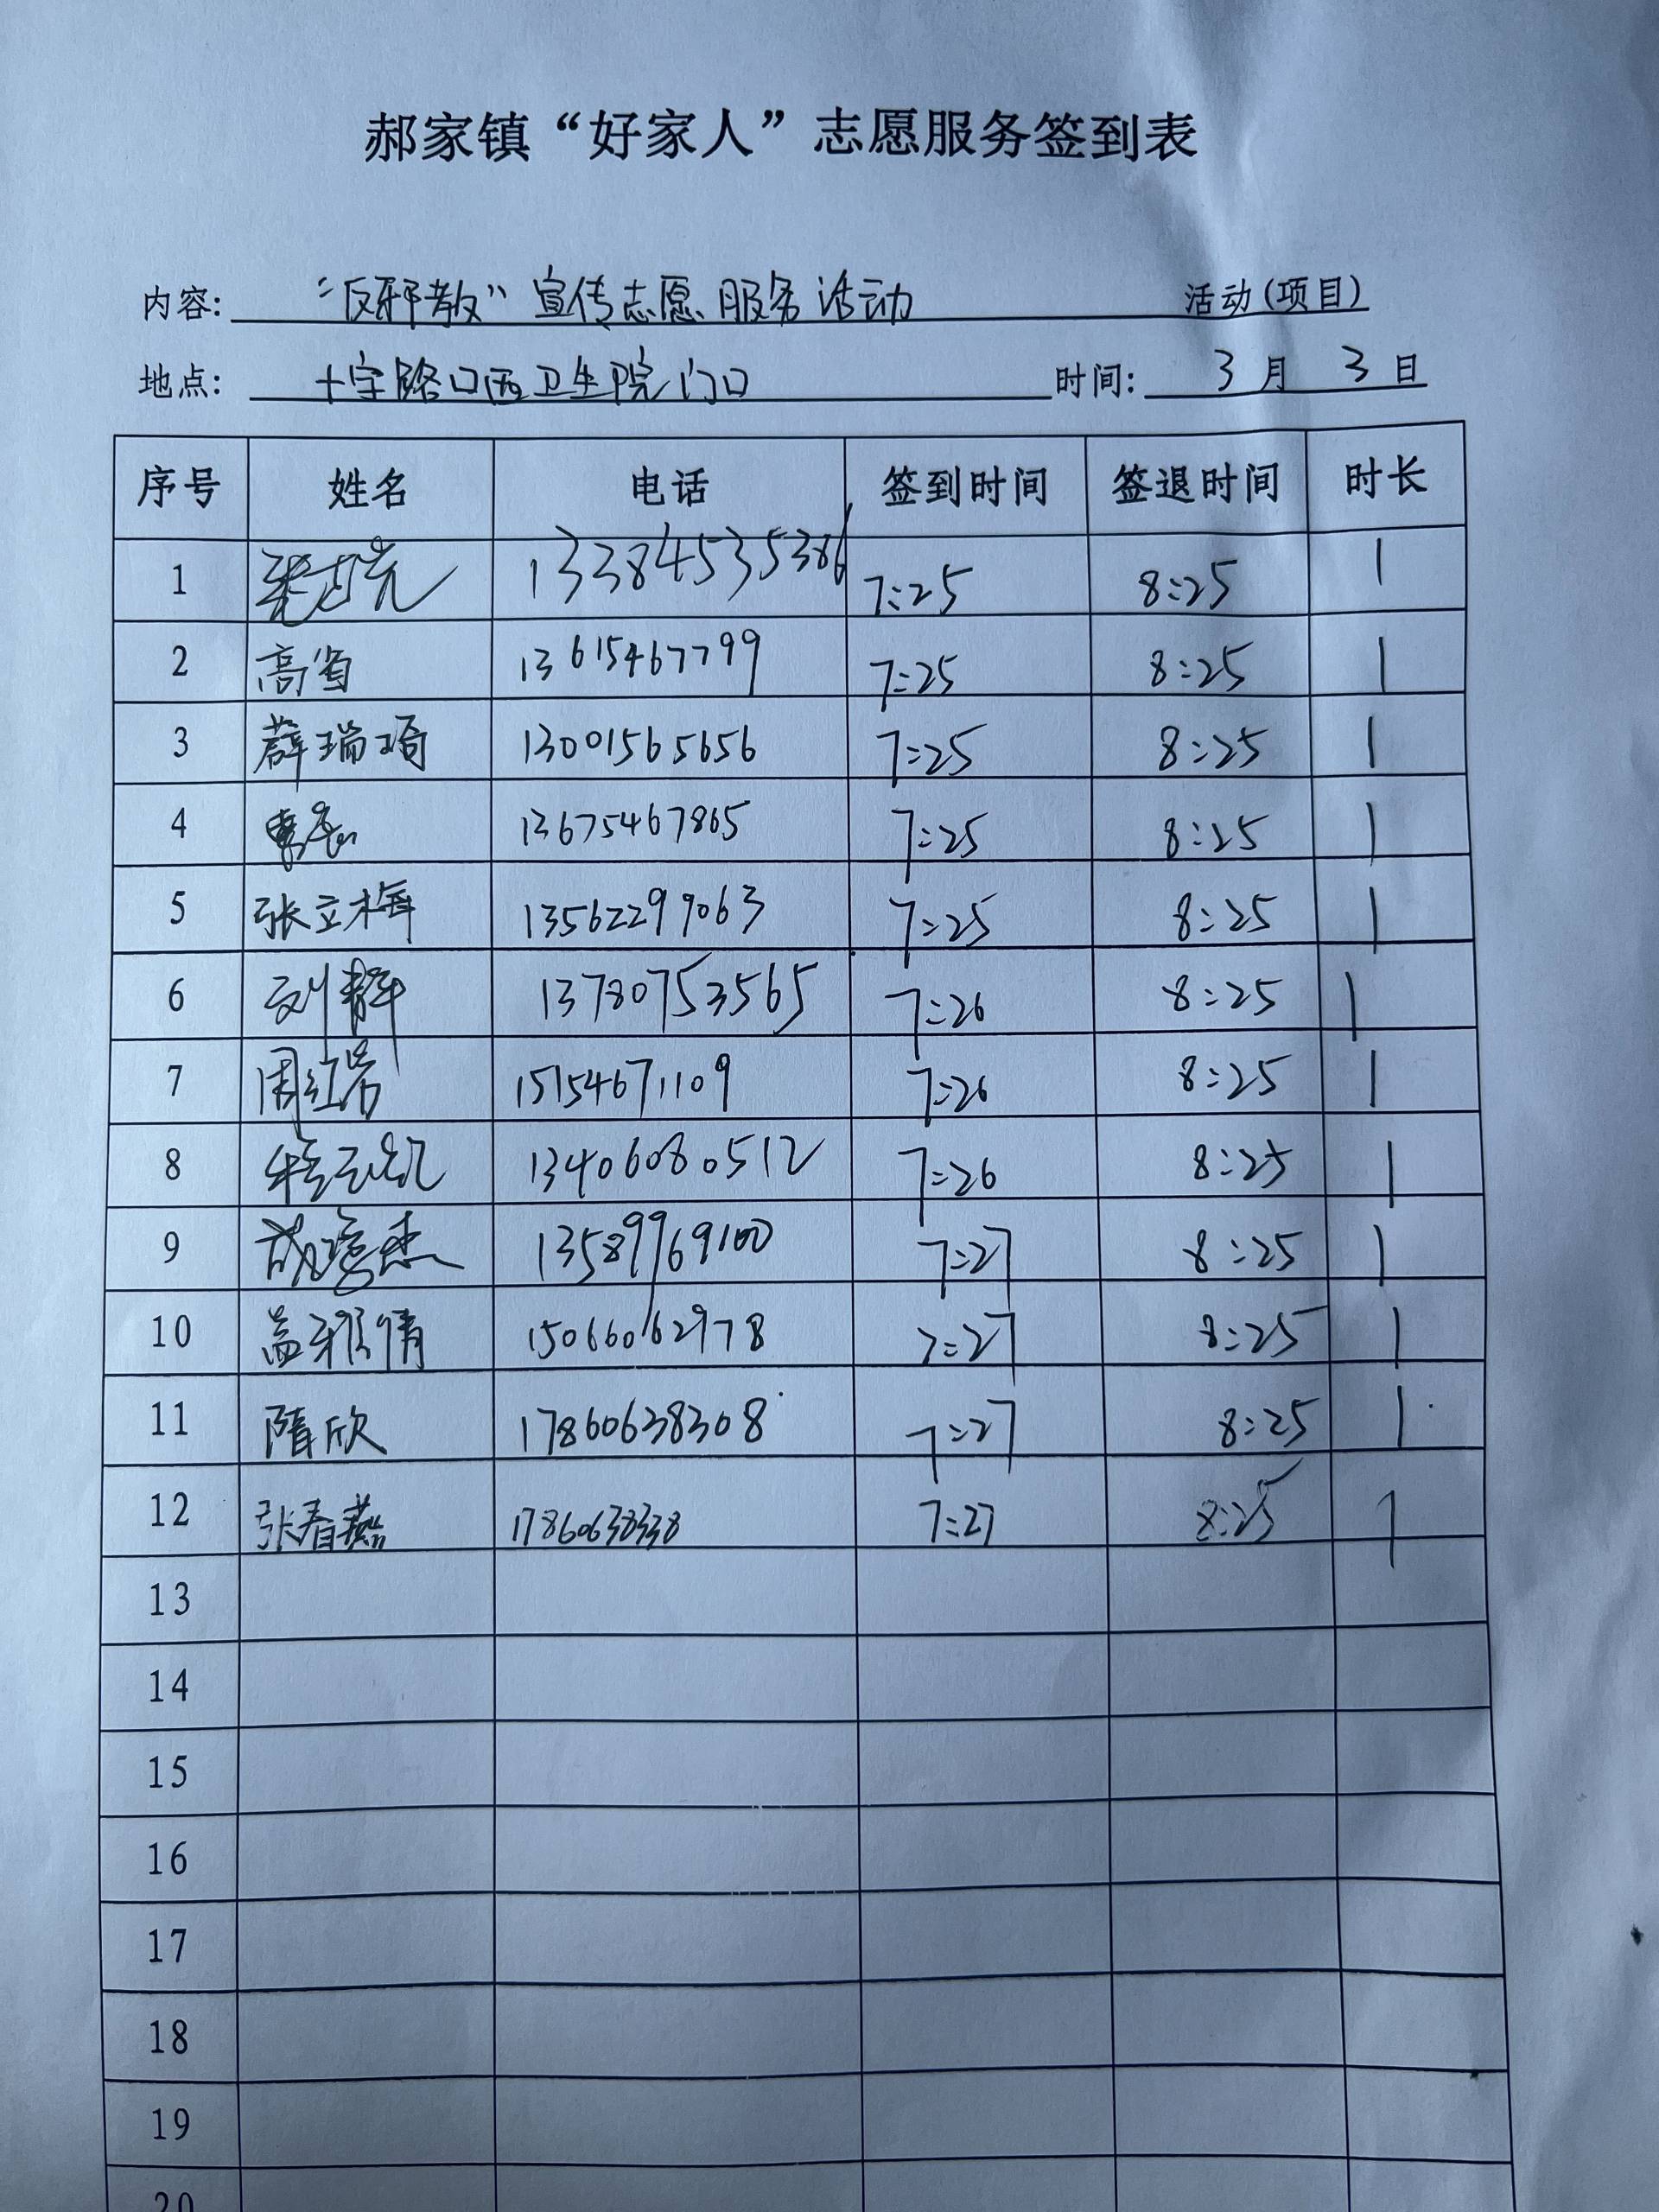 郝家镇“好家人”志愿服务签到表
内容: “反邪教”宣传志愿服务活动 活动(项目)
地点: 十字路口西卫生院门口 时间: 3月3日
序号 姓名 电话 签到时间 签退时间 时长
1 13384535386 7:25 8:25 1
2 高省 13615467799 7:25 8:25 1
3 薛瑞琦 13001565656 7:25 8:25 1
4 13675467865 7:25 8:25 1
5 张立梅 13562299063 7:25 8:25 1
6 刘静 13780753565 7:26 8:25 1
7 周红岩 15154671109 7:26 8:25 1
8 13406080512 7:26 8:25 1
9 13589969100 7:27 8:25 1
10 盖雅倩 15066062978 7:27 8:25 1
11 隋欣 17860638308 7:27 8:25 1
12 张春燕 17860638338 7:27 8:25 1
13
14
15
16
17
18
19
20